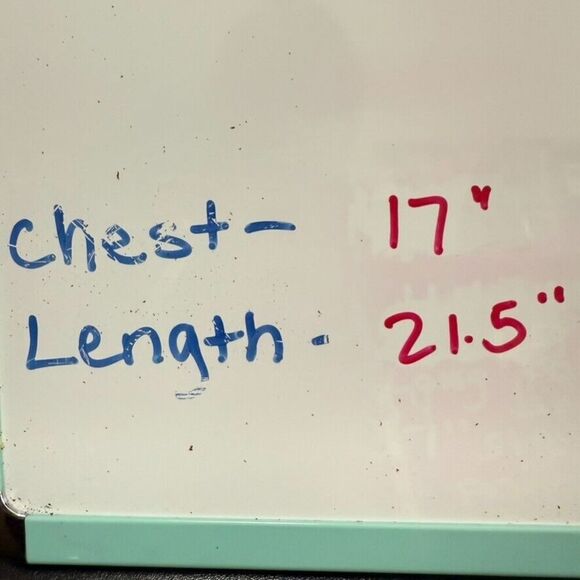 Chest- 17"
Length- 21.5"